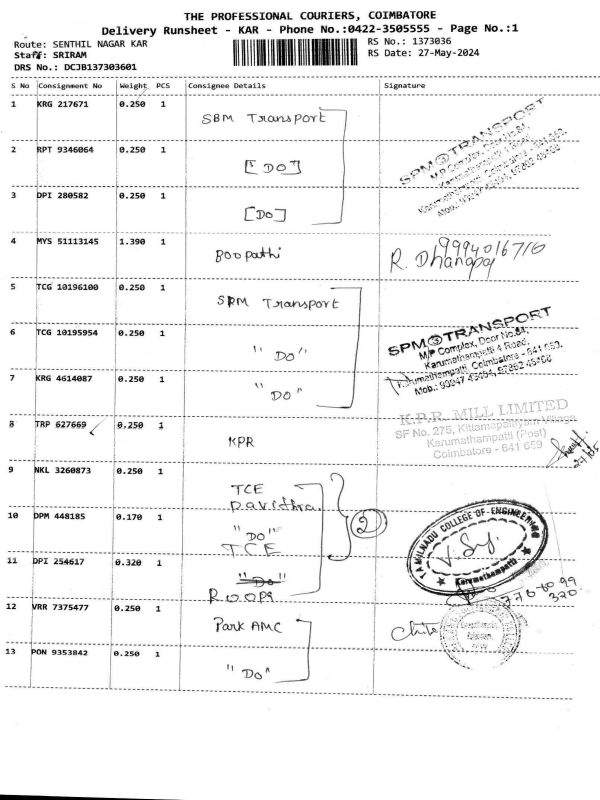 THE PROFESSIONAL COURIERS, COIMBATORE
Delivery Runsheet - KAR - Phone No.:0422-3505555 - Page No.:1
Route: SENTHIL NAGAR KAR
RS No.: 1373036
Staff: SRIRAM
RS Date: 27-May-2024
DRS No.: DCJB137303601
S No Consignment No Weight PCS Consignee Details Signature
1 KRG 217671 0.250 1 SBM Transport
SPM TRANSPORT
M/P Complex, Door No.84,
Karumathampatti 4 Road,
Karumathampatti, Coimbatore - 641 659.
Mob.: 99947 43494, 97892 46498
2 RPT 9346064 0.250 1 [DO]
3 DPI 280582 0.250 1 [DO]
4 MYS 51113145 1.390 1 Boopathi
R. Dhanapal
9994016710
5 TCG 10196100 0.250 1 SPM Transport
6 TCG 10195954 0.250 1 "DO"
SPM TRANSPORT
M/P Complex, Door No.84,
Karumathampatti 4 Road,
Karumathampatti, Coimbatore - 641 659.
Mob.:
7 KRG 4614087 0.250 1 "DO"
8 TRP 627669 0.250 1 KPR
K.P.R. MILL LIMITED
SF No. 275, Kittampalayam Village
Karumathampatti (Post)
Coimbatore - 641 659
27/05
9 NKL 3260873 0.250 1 TCE
Pavithra
2
10 DPM 448185 0.170 1 "DO"
TCE
TAMILNADU COLLEGE OF ENGINEERING
Karumathampatti
11 DPI 254617 0.320 1 "DO"
Roopa
12 VRR 7375477 0.250 1 Park AMC
13 PON 9353842 0.250 1 "DO"